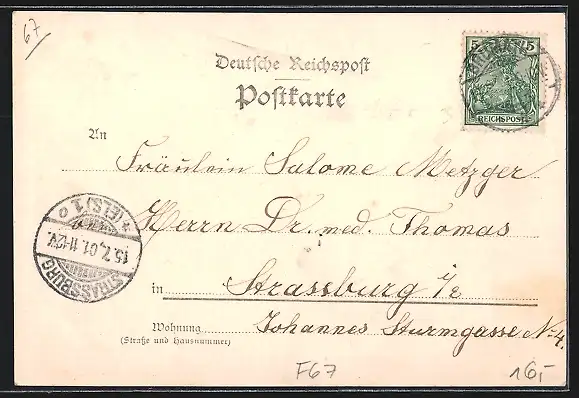 67
Deutsche Reichspost
Postkarte
5 5
REICHSPOST
An
Fräulein Salome Metzger
Herrn Dr. med. Thomas
in Strassburg i/E
Wohnung Johannes Sturmgasse No 4.
(Straße und Hausnummer)
STRASSBURG
15.7.01.11-12V.
* (ELS) 1 o
F67
16,-